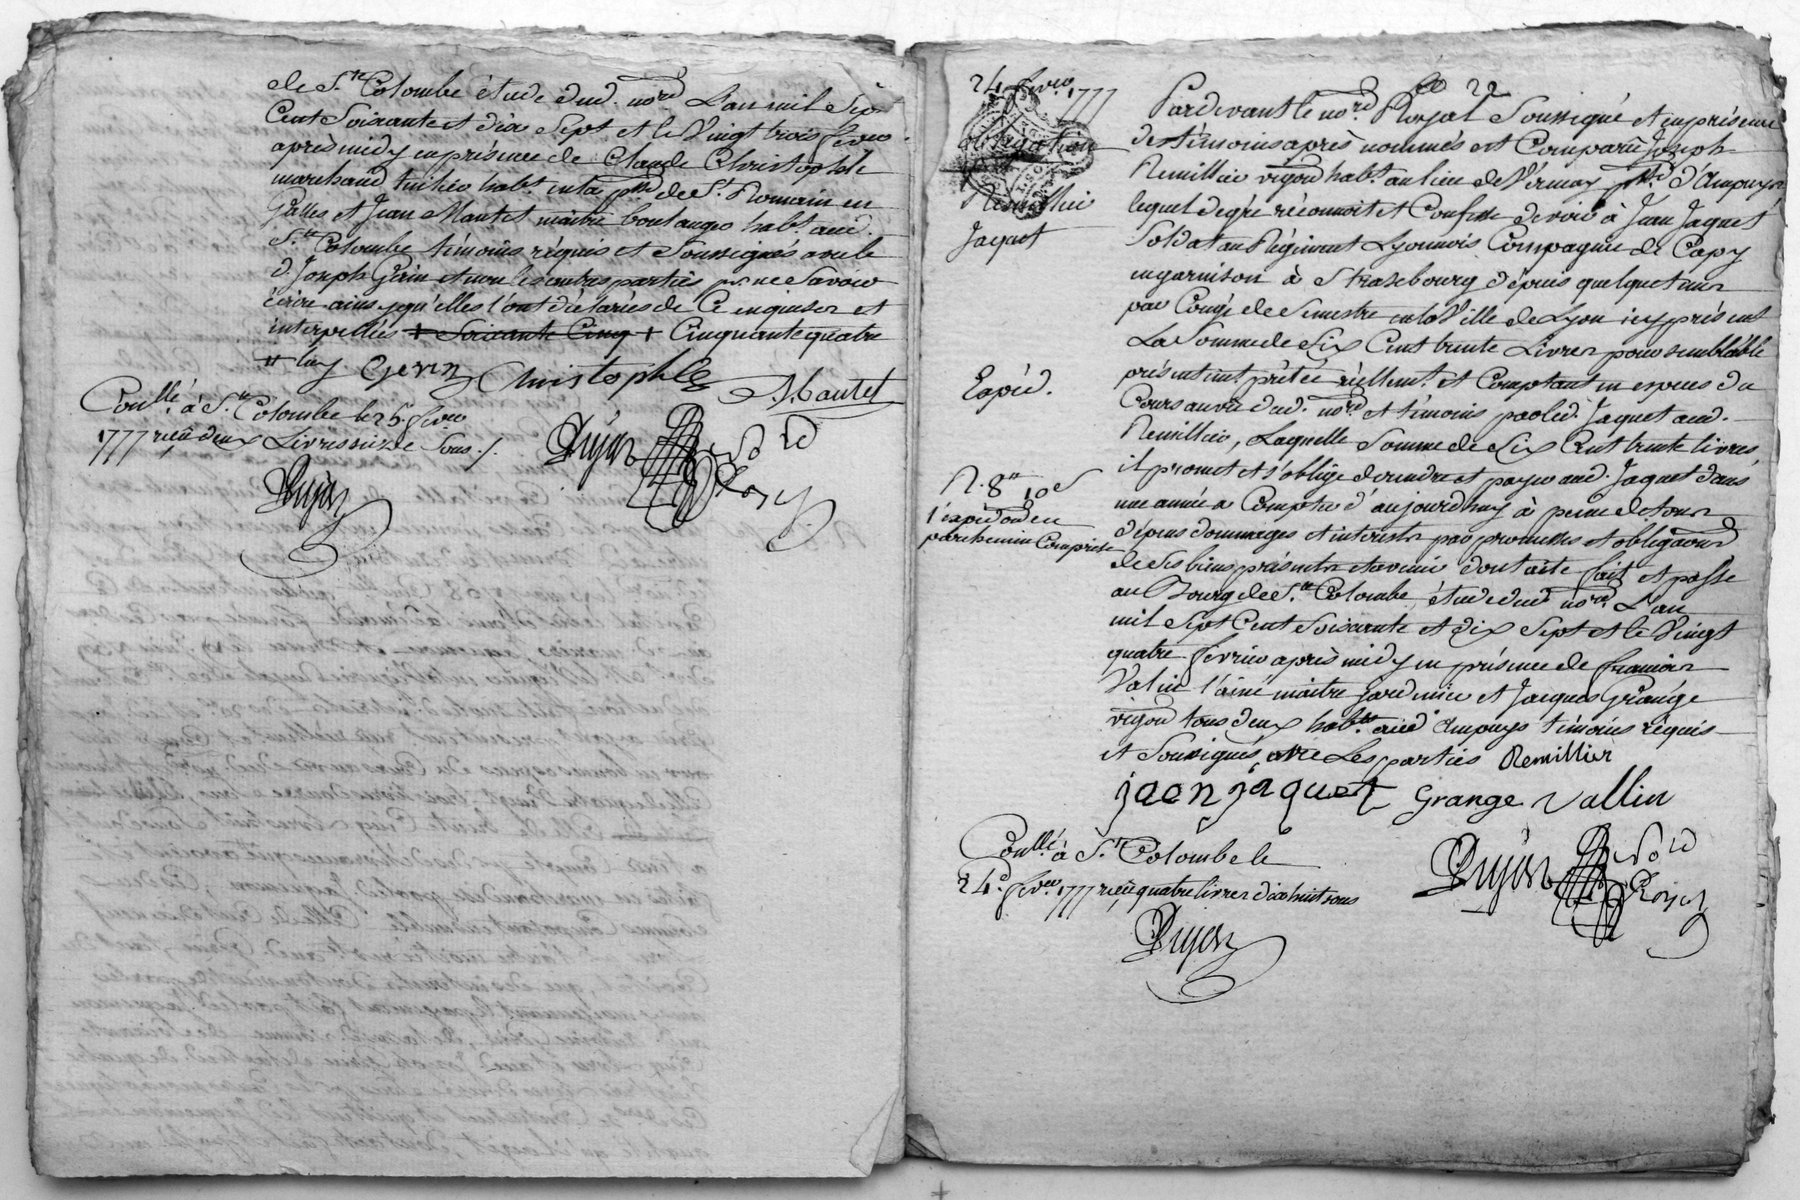 de S.te Colombe étude dud. no.re L'an mil Sept
Cent Soixante et dix Sept et le Vingt trois fevrier
après midy en présence de Claude Christophle
marchand habt. en la pss.e de S.t Romain en
Galles et Jean Mantet maitre boulanger habt. aud.
S.te Colombe témoins réquis et Soussignés avec le
d. Joseph Gerin et non les autres parties pr. ne Savoir
écrire ainsy qu'elles l'ont déclaré de Ce enquises et
interpellées + Soixante Cinq + Cinquante quatre
Gerin Christophle J. Mantet
Con.llé à S.te Colombe le 25. fevrier
1777 reçu deux Livres Sous ./.
Dujon no.re
Royal
Dujon
24 fevrier 1777
obligation
Remillier
Jaquet
Expéd.
R. 8.# 10.s
l'expedon. en
parchemin Comprise
22
Pardevant le no.re Royal Soussigné et en présence
des témoins après nommés est Comparu Joseph
Remillier vigon habt. au lieu de Verenay pss.e d'Ampuys
lequel de gré réconnoit et Confesse devoir à Jean Jaquet
Soldat au Régiment Lyonnois Compagnie de Capy
en garnison à Strasbourg dépuis quelque tems
par Congé de Semestre en la Ville de Lyon icy présent
La Somme de Six Cent trente Livres pour semblable
présentemt. prêtée réellemt. et Comptant en espèces du
Cours au vû dud. no.re et témoins par led. Jaquet aud.
Remillier, Laquelle Somme de Six Cent trente livres
il promet et s'oblige de rendre et payer aud. Jaquet dans
une année a Compter d'aujourd'huy à peine de tous
dépens dommages et interests par promesses et obligaons.
de ses biens présents et avenir dont acte fait et passé
au Bourg de S.te Colombe, étude dud. no.re L'an
mil Sept Cent Soixante et dix Sept et le Vingt
quatre fevrier après midy en présence de francois
Valin l'ainé maitre jardinier et Jacques Grange
vigon tous deux habts. aud. Ampuys témoins réquis
et Soussignés avec Les parties Remillier
jaen jaquet Grange Vallin
Con.llé à S.te Colombe le
24.e fevrier 1777 reçu quatre livres dix huit sous
Dujon no.re
Royal
Dujon